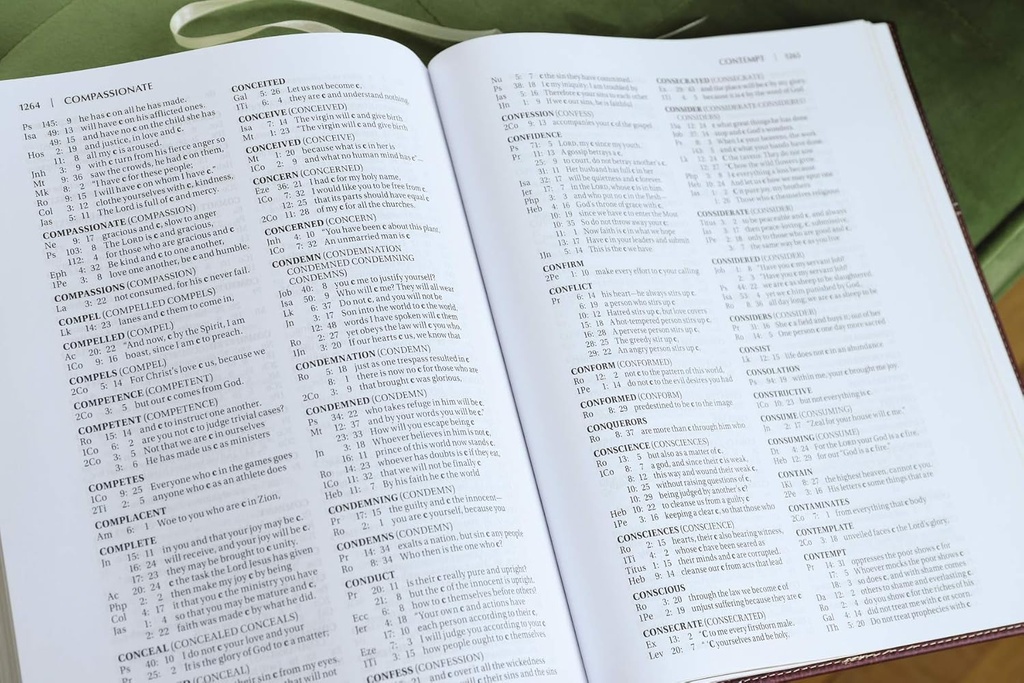 1264 | COMPASSIONATE
Ps 145: 9 he has c on all he has made.
Isa 49: 13 will have c on his afflicted ones.
49: 15 and have no c on the child she has
Hos 2: 19 and justice, in love and c.
11: 8 all my c is aroused.
Mt 9: 36 saw the crowds, he had c on them,
Mk 8: 2 "I have c for these people;
Ro 9: 15 I will have c on whom I have c."
Col 3: 12 clothe yourselves with c, kindness,
Jas 5: 11 The Lord is full of c and mercy.
COMPASSIONATE (COMPASSION)
Ne 9: 17 gracious and c, slow to anger
Ps 103: 8 The Lord is c and gracious,
112: 4 for those who are gracious and c
Eph 4: 32 Be kind and c to one another,
1Pe 3: 8 love one another, be c and humble.
COMPASSIONS (COMPASSION)
La 3: 22 not consumed, for his c never fail.
COMPEL (COMPELLED COMPELS)
Lk 14: 23 lanes and c them to come in,
COMPELLED (COMPEL)
Ac 20: 22 "And now, c by the Spirit, I am
1Co 9: 16 boast, since I am c to preach.
COMPELS (COMPEL)
2Co 5: 14 For Christ's love c us, because we
COMPETENCE (COMPETENT)
2Co 3: 5 but our c comes from God.
COMPETENT (COMPETENCE)
Ro 15: 14 and c to instruct one another.
1Co 6: 2 are you not c to judge trivial cases?
2Co 3: 5 Not that we are c in ourselves
3: 6 He has made us c as ministers
COMPETES
1Co 9: 25 Everyone who c in the games goes
2Ti 2: 5 anyone who c as an athlete does
COMPLACENT
Am 6: 1 Woe to you who are c in Zion,
COMPLETE
Jn 15: 11 in you and that your joy may be c.
16: 24 will receive, and your joy will be c.
17: 23 they may be brought to c unity.
Ac 20: 24 c the task the Lord Jesus has given
Php 2: 2 then make my joy c by being
Col 4: 17 it that you c the ministry you have
Jas 1: 4 so that you may be mature and c,
2: 22 faith was made c by what he did.
CONCEAL (CONCEALED CONCEALS)
Ps 40: 10 I do not c your love and your
Pr 25: 2 It is the glory of God to c a matter;
(CONCEAL)
their sin c from my eyes.
CONCEITED
Gal 5: 26 Let us not become c,
1Ti 6: 4 they are c and understand nothing.
CONCEIVE (CONCEIVED)
Isa 7: 14 The virgin will c and give birth
Mt 1: 23 "The virgin will c and give birth
CONCEIVED (CONCEIVE)
Mt 1: 20 because what is c in her is
1Co 2: 9 and what no human mind has c"—
CONCERN (CONCERNED)
Eze 36: 21 I had c for my holy name,
1Co 7: 32 I would like you to be free from c.
12: 25 that its parts should have equal c
2Co 11: 28 of my c for all the churches.
CONCERNED (CONCERN)
Jnh 4: 10 "You have been c about this plant,
1Co 7: 32 An unmarried man is c
CONDEMN (CONDEMNATION
CONDEMNED CONDEMNING
CONDEMNS)
Job 40: 8 you c me to justify yourself?
Isa 50: 9 Who will c me? They will all wear
Lk 6: 37 Do not c, and you will not be
Jn 3: 17 Son into the world to c the world,
12: 48 words I have spoken will c them
Ro 2: 27 yet obeys the law will c you who,
1Jn 3: 20 If our hearts c us, we know that
CONDEMNATION (CONDEMN)
Ro 5: 18 just as one trespass resulted in c
8: 1 there is now no c for those who are
2Co 3: 9 that brought c was glorious,
CONDEMNED (CONDEMN)
Ps 34: 22 who takes refuge in him will be c.
Mt 12: 37 and by your words you will be c."
23: 33 How will you escape being c
Jn 3: 18 Whoever believes in him is not c,
16: 11 prince of this world now stands c.
Ro 14: 23 whoever has doubts is c if they eat,
1Co 11: 32 that we will not be finally c
Heb 11: 7 By his faith he c the world
CONDEMNING (CONDEMN)
Pr 17: 15 the guilty and c the innocent—
Ro 2: 1 you are c yourself, because you
CONDEMNS (CONDEMN)
Pr 14: 34 exalts a nation, but sin c any people
Ro 8: 34 Who then is the one who c?
CONDUCT
Pr 20: 11 is their c really pure and upright?
21: 8 but the c of the innocent is upright.
Ecc 6: 8 how to c themselves before others?
Jer 4: 18 "Your own c and actions have
17: 10 each person according to their c,
Eze 7: 3 I will judge you according to your c
1Ti 3: 15 how people ought to c themselves
CONFESS (CONFESSION)
21 and c over it all the wickedness
c their sins and the sins
CONTEMPT | 1265
Nu 5: 7 c the sin they have committed.
Ps 38: 18 I c my iniquity; I am troubled by
Jas 5: 16 Therefore c your sins to each other
1Jn 1: 9 If we c our sins, he is faithful
CONFESSION (CONFESS)
2Co 9: 13 accompanies your c of the gospel
CONFIDENCE
Ps 71: 5 Lord, my c since my youth.
Pr 11: 13 A gossip betrays a c,
25: 9 to court, do not betray another's c,
31: 11 Her husband has full c in her
Isa 32: 17 will be quietness and c forever.
Jer 17: 7 in the Lord, whose c is in him.
Php 3: 3 and who put no c in the flesh—
Heb 4: 16 God's throne of grace with c,
10: 19 since we have c to enter the Most
10: 35 So do not throw away your c;
11: 1 Now faith is c in what we hope
13: 17 Have c in your leaders and submit
1Jn 5: 14 This is the c we have
CONFIRM
2Pe 1: 10 make every effort to c your calling
CONFLICT
Pr 6: 14 his heart—he always stirs up c.
6: 19 a person who stirs up c
10: 12 Hatred stirs up c, but love covers
15: 18 A hot-tempered person stirs up c,
16: 28 A perverse person stirs up c,
28: 25 The greedy stir up c,
29: 22 An angry person stirs up c,
CONFORM (CONFORMED)
Ro 12: 2 not c to the pattern of this world,
1Pe 1: 14 do not c to the evil desires you had
CONFORMED (CONFORM)
Ro 8: 29 predestined to be c to the image
CONQUERORS
Ro 8: 37 are more than c through him who
CONSCIENCE (CONSCIENCES)
Ro 13: 5 but also as a matter of c.
1Co 8: 7 a god, and since their c is weak,
8: 12 this way and wound their weak c,
10: 25 without raising questions of c,
10: 29 being judged by another's c?
Heb 10: 22 to cleanse us from a guilty c
1Pe 3: 16 keeping a clear c, so that those who
CONSCIENCES (CONSCIENCE)
Ro 2: 15 hearts, their c also bearing witness,
1Ti 4: 2 whose c have been seared as
Titus 1: 15 their minds and c are corrupted.
Heb 9: 14 cleanse our c from acts that lead
CONSCIOUS
Ro 3: 20 through the law we become c of
1Pe 2: 19 unjust suffering because they are c
CONSECRATE (CONSECRATED)
Ex 13: 2 "C to me every firstborn male.
Lev 20: 7 " 'C yourselves and be holy,
CONSECRATED (CONSECRATE)
Ex 29: 43 and the place will be c by my glory.
1Ti 4: 5 because it is c by the word of God
CONSIDER (CONSIDERATE CONSIDERED
CONSIDERS)
CONSIDERATE (CONSIDER)
Titus 3: 2 to be peaceable and c, and always
Jas 3: 17 then peace-loving, c, submissive,
1Pe 2: 18 only to those who are good and c,
3: 7 the same way be c as you live
CONSIDERED (CONSIDER)
Job 1: 8 "Have you c my servant Job?
2: 3 "Have you c my servant Job?
Ps 44: 22 we are c as sheep to be slaughtered.
Isa 53: 4 yet we c him punished by God,
Ro 8: 36 all day long; we are c as sheep to be
CONSIDERS (CONSIDER)
Pr 31: 16 She c a field and buys it; out of her
Ro 14: 5 One person c one day more sacred
CONSIST
Lk 12: 15 life does not c in an abundance
CONSOLATION
Ps 94: 19 within me, your c brought me joy.
CONSTRUCTIVE
1Co 10: 23 but not everything is c.
CONSUME (CONSUMING)
Jn 2: 17 "Zeal for your house will c me."
CONSUMING (CONSUME)
Dt 4: 24 For the Lord your God is a c fire,
Heb 12: 29 for our "God is a c fire."
CONTAIN
1Ki 8: 27 the highest heaven, cannot c you.
2Pe 3: 16 His letters c some things that are
CONTAMINATES
2Co 7: 1 from everything that c body
CONTEMPLATE
2Co 3: 18 unveiled faces c the Lord's glory,
CONTEMPT
Pr 14: 31 oppresses the poor shows c for
17: 5 Whoever mocks the poor shows c
18: 3 so does c, and with shame comes
Da 12: 2 others to shame and everlasting c.
Ro 2: 4 do you show c for the riches of his
Gal 4: 14 did not treat me with c or scorn.
1Th 5: 20 Do not treat prophecies with c